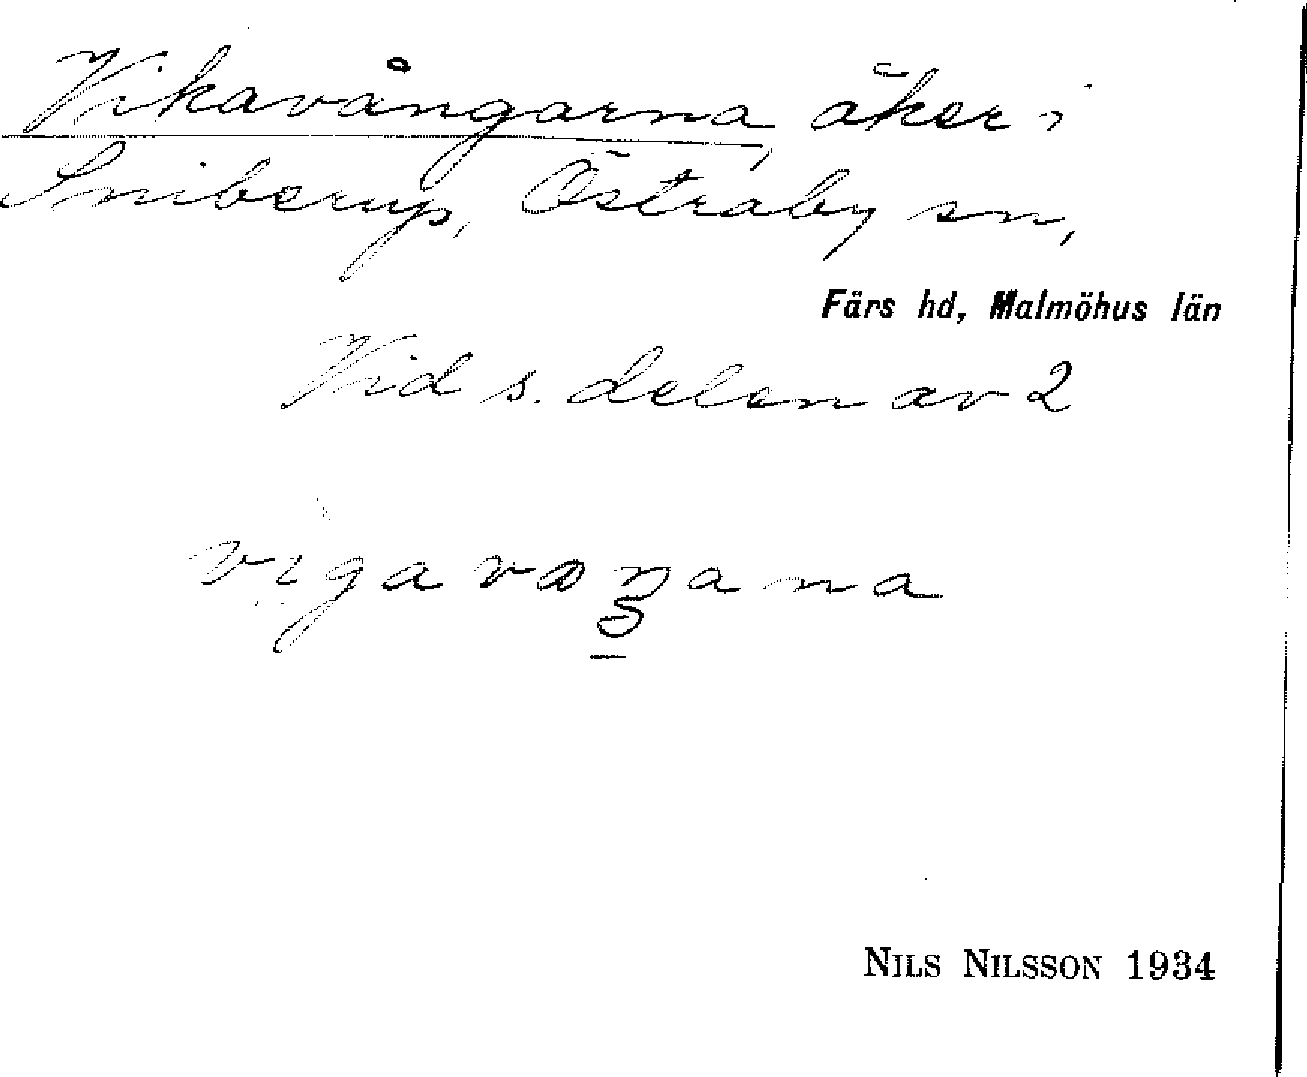 Vikavångarna, åker i
Sniberup, Östraby sn,
Färs hd, Malmöhus län
Vid s. delen av 2
NILS NILSSON 1934